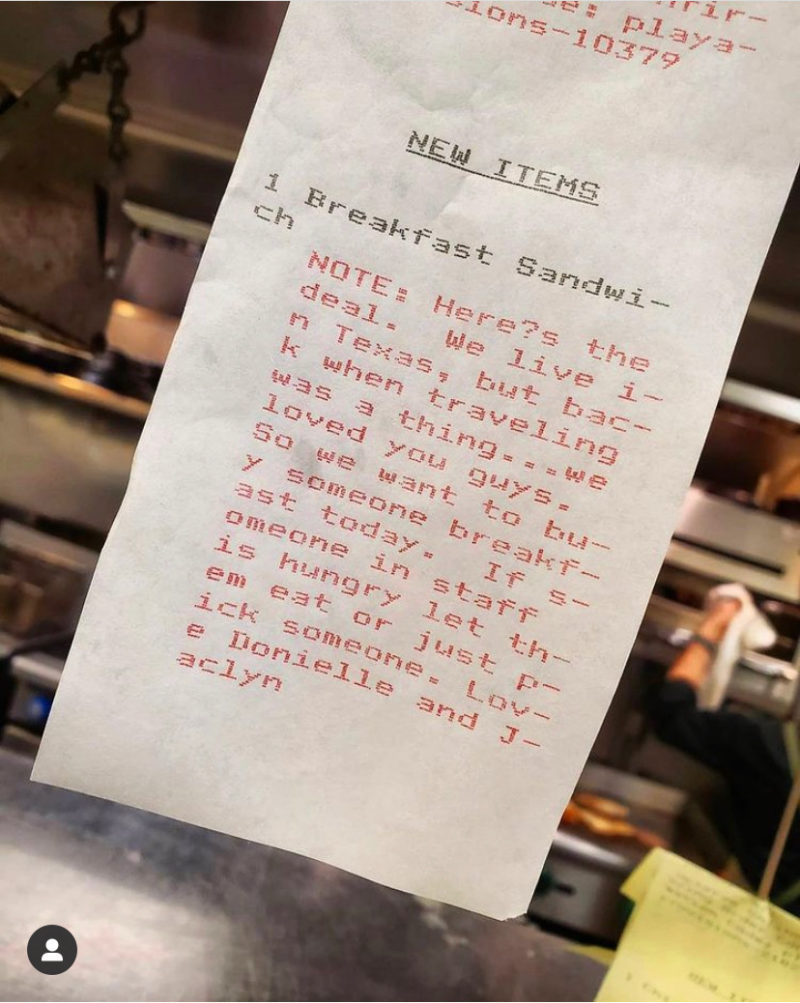 playa-
sions-10379
NEW ITEMS
1 Breakfast Sandwi-
ch
NOTE: Here?s the
deal. We live i-
n Texas, but bac-
k when traveling
was a thing...we
loved you guys.
So we want to bu-
y someone breakf-
ast today. If s-
omeone in staff
is hungry let th-
em eat or just p-
ick someone. Lov-
e Donielle and J-
aclyn